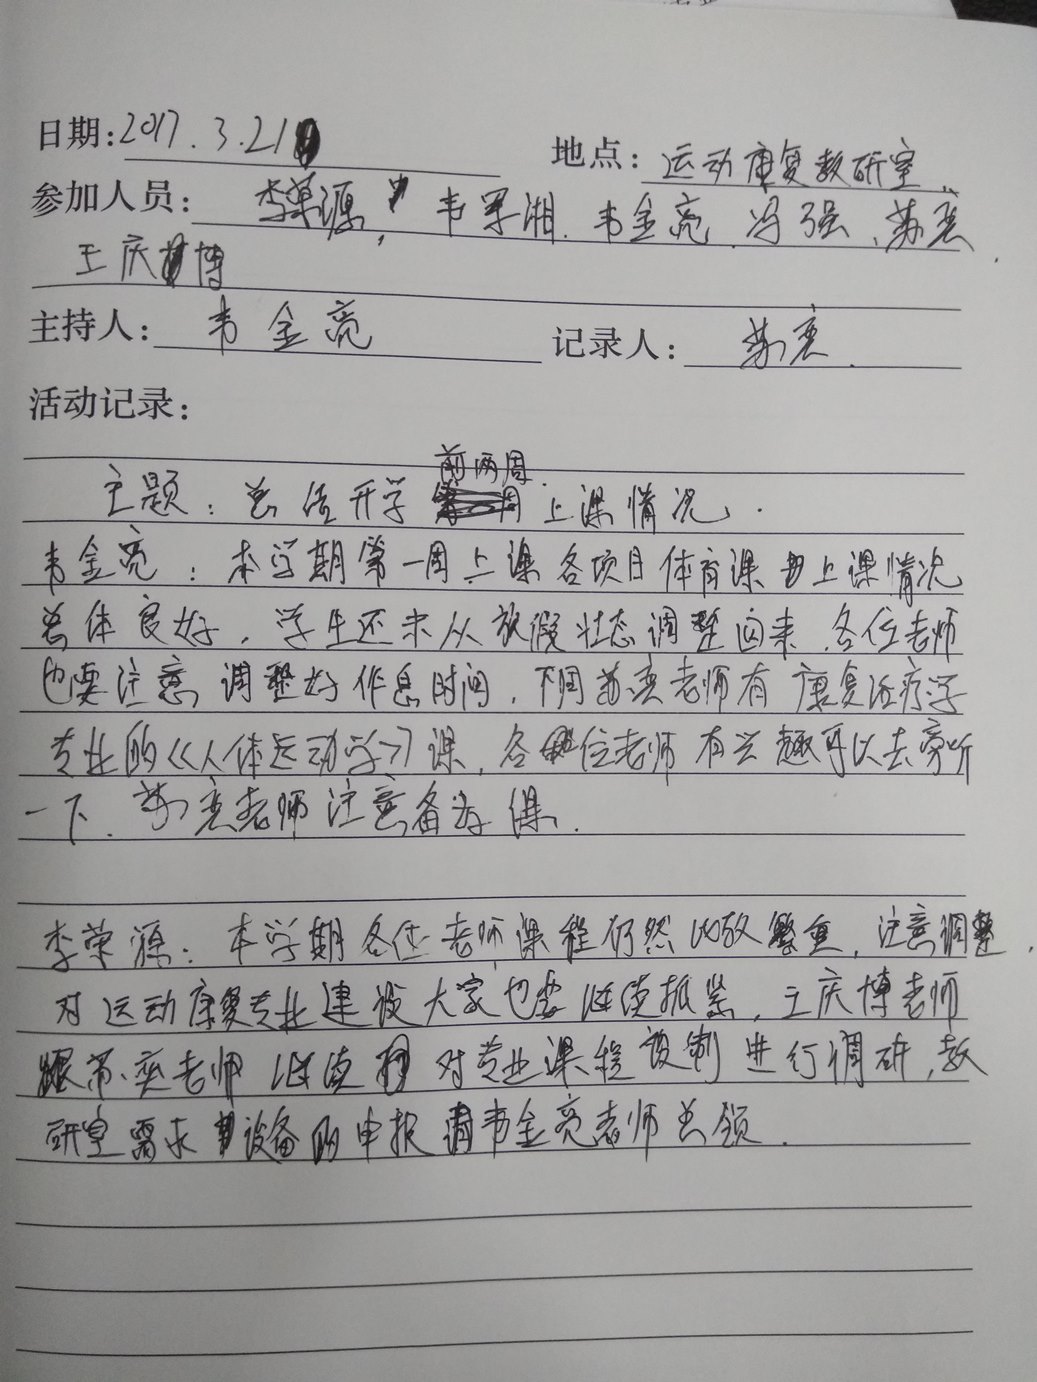 日期:2017.3.21
地点:运动康复教研室
参加人员:李荣源,韦军湘.韦金亮.冯强、苏奕、
王庆博
主持人:韦金亮
记录人:苏奕.
活动记录:
前两周
主题:总结开学上课情况.
韦金亮:本学期第一周上课各项目体育课上课情况
总体良好,学生还未从放假状态调整回来.各位老师
也要注意调整好作息时间,下周苏奕老师有康复治疗学
专业的《人体运动学》课,各位老师有兴趣可以去旁听
一下.苏奕老师注意备好课.
李荣源:本学期各位老师课程仍然比较繁重,注意调整,
对运动康复专业建设大家也要继续抓紧,王庆博老师
跟苏奕老师继续对专业课程设制进行调研,教
研室需求设备的申报请韦金亮老师总领.